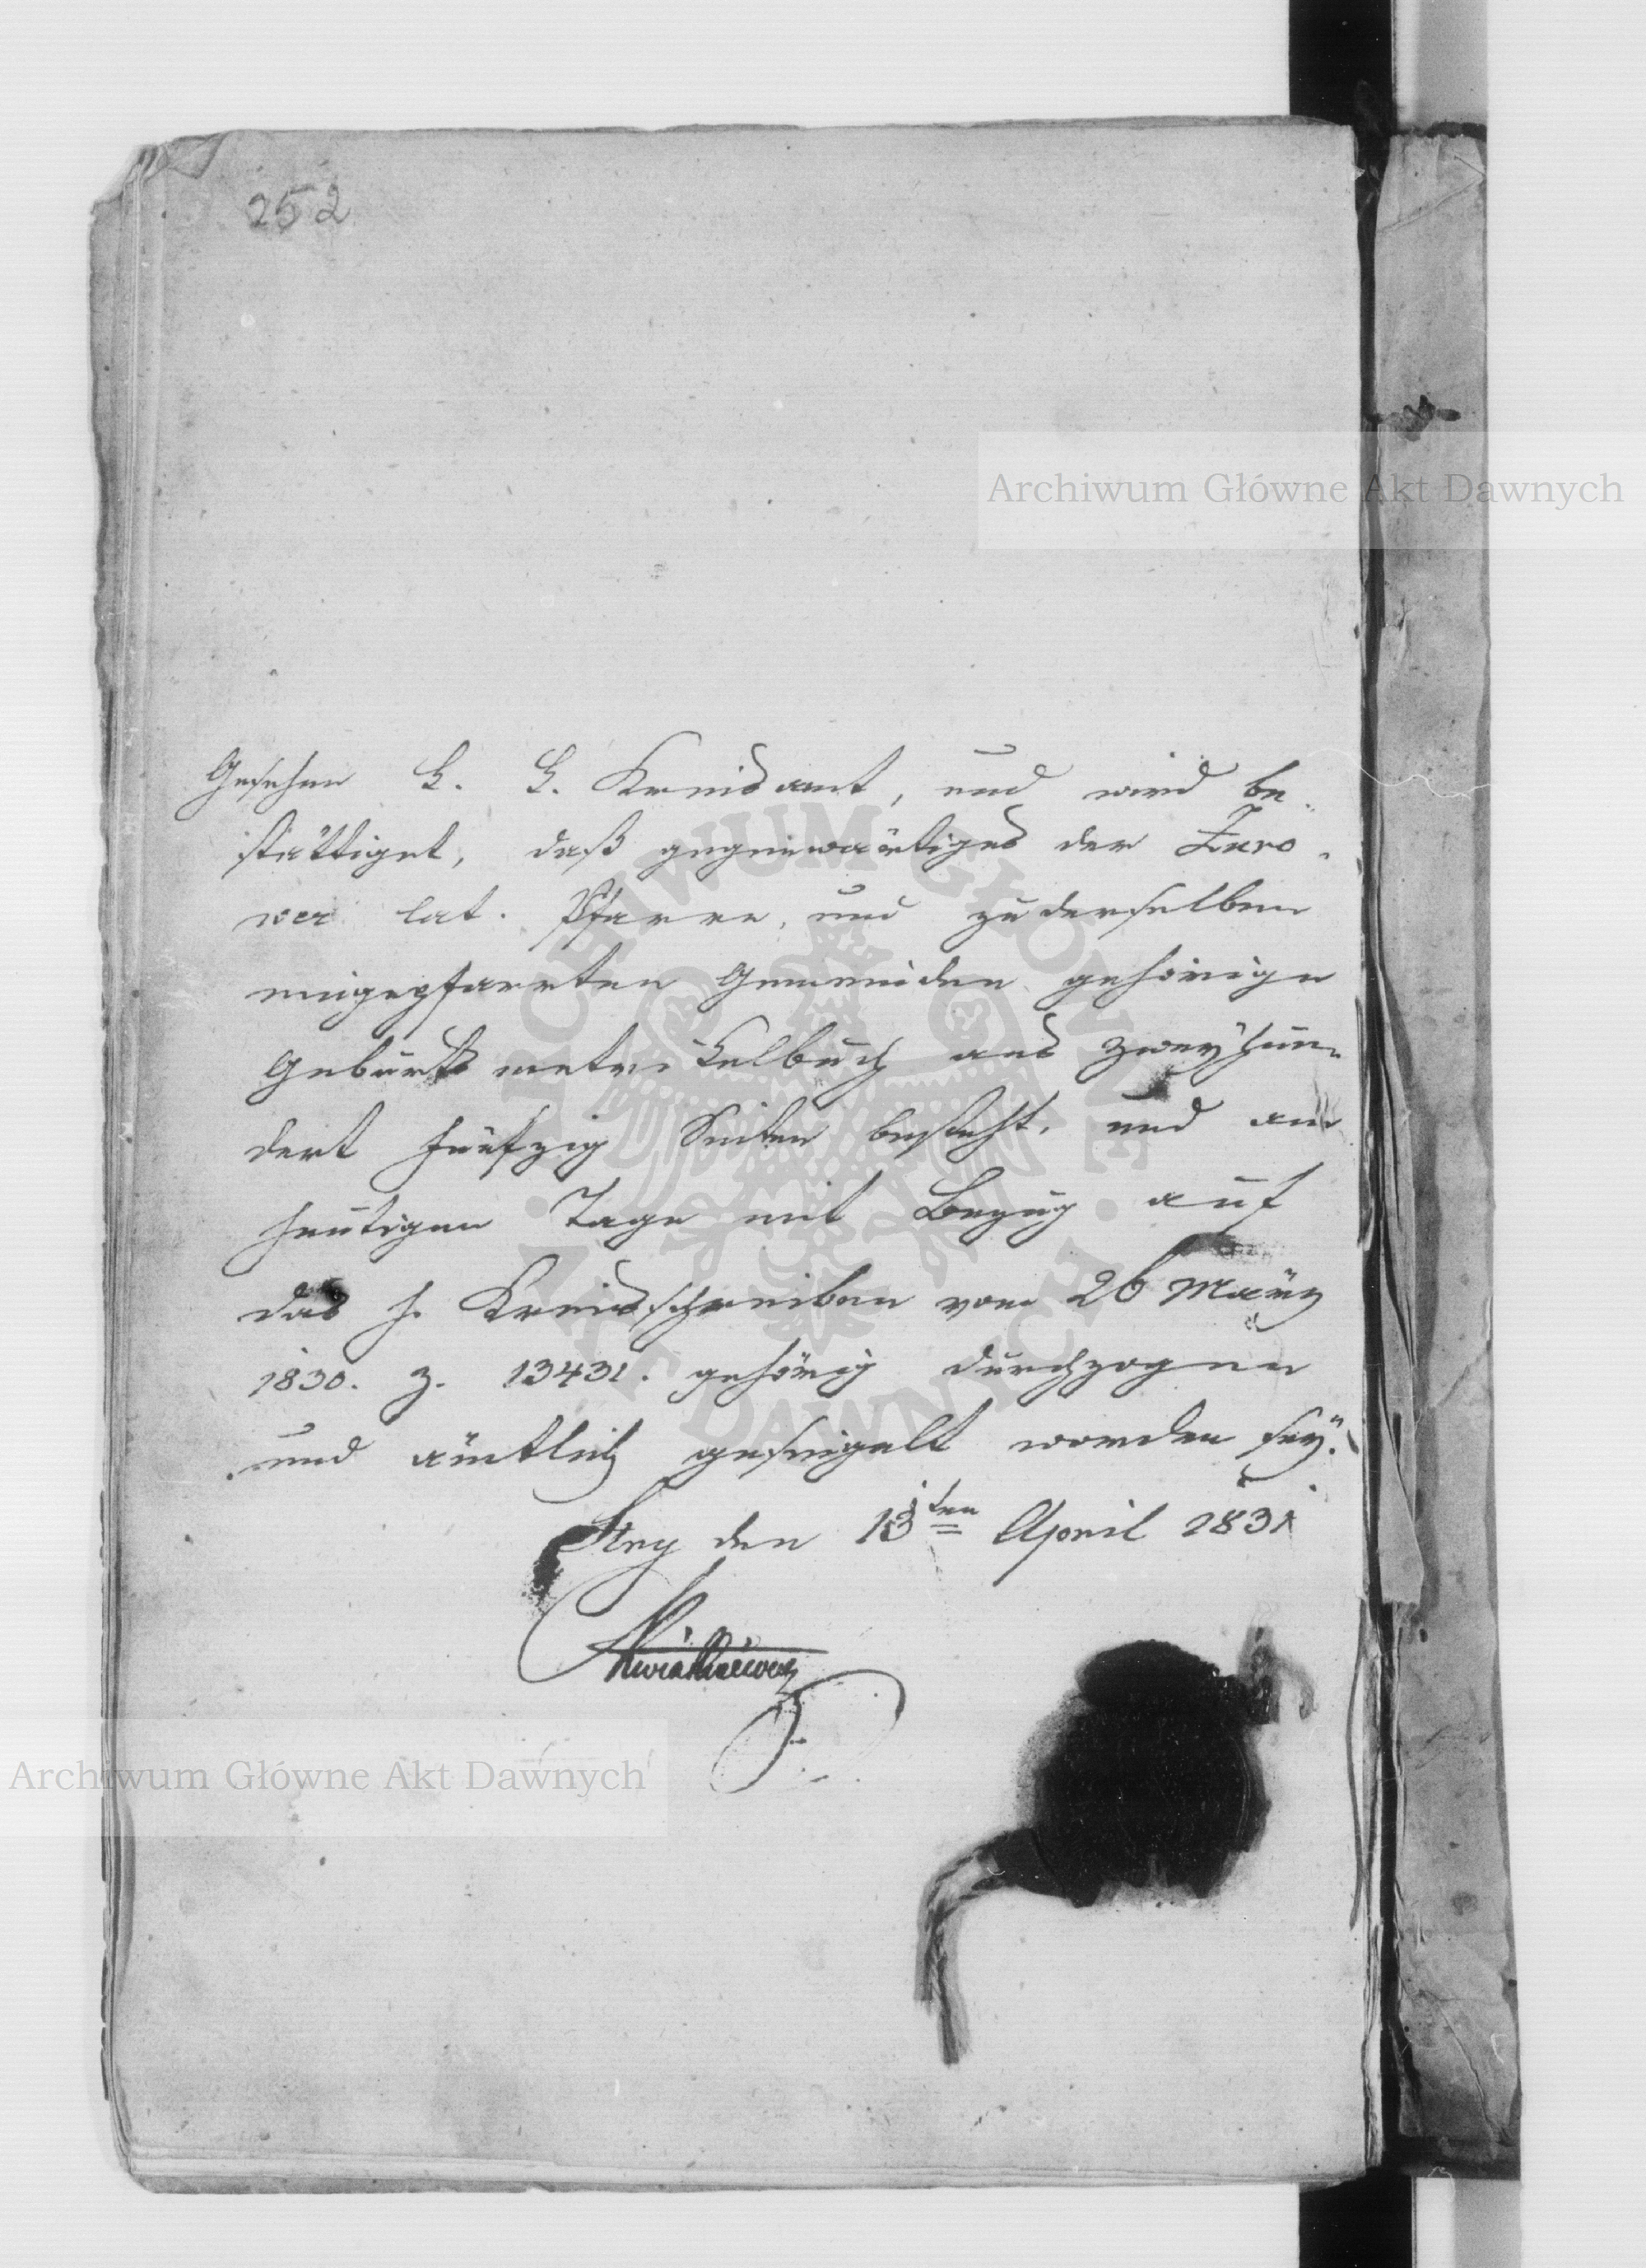 252
Archiwum Główne Akt Dawnych
Gesehen K. K. Kreisamt, und wird be-
stättiget, daß gegenwärtiges der Zuro-
wer lat. Pfarre, und zu derselben
eingepfarrten Gemeinden gehörige
Geburtsmetrikelbuch aus zweyhun-
dert fünfzig Seiten besteht, und am
heutigen Tage mit Bezug auf
das h. Kreisschreiben vom 26 März
1830. Z. 13431. gehörig durchzogen
und ämtlich gesiegelt worden sey.
Stry den 13ten April 1831
Archiwum Główne Akt Dawnych
ARCHIWUM GŁÓWNE · AKT DAWNYCH ·